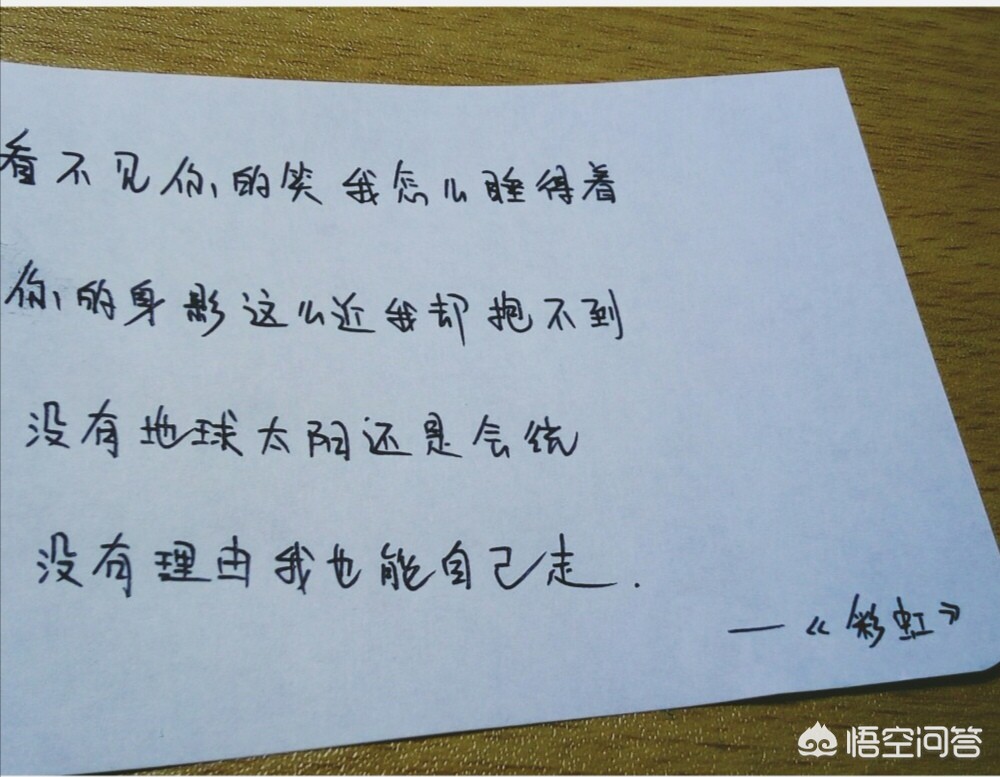 看不见你的笑我怎么睡得着
你的身影这么近我却抱不到
没有地球太阳还是会绕
没有理由我也能自己走.
—《彩虹》
悟空问答